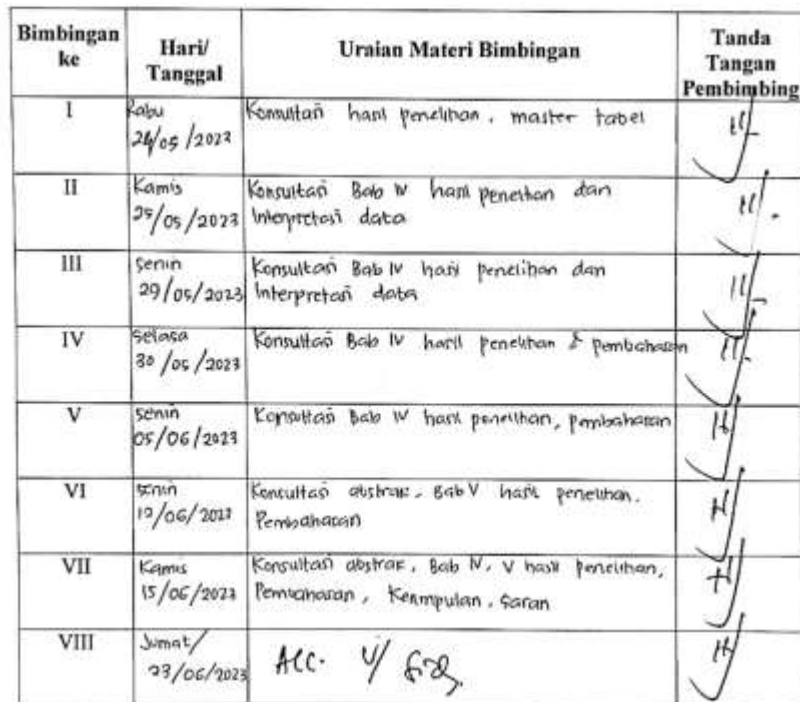 Bimbingan ke
Hari/ Tanggal
Uraian Materi Bimbingan
Tanda Tangan Pembimbing
I
Rabu
24/05/2023
Konsultasi hasil penelitian, master tabel
II
Kamis
25/05/2023
Konsultasi Bab IV hasil penelitian dan
Interpretasi data
III
Senin
29/05/2023
Konsultasi Bab IV hasil penelitian dan
Interpretasi data
IV
Selasa
30/05/2023
Konsultasi Bab IV hasil penelitian & pembahasan
V
Senin
05/06/2023
Konsultasi Bab IV hasil penelitian, pembahasan
VI
Senin
12/06/2023
Konsultasi abstrak, Bab V hasil penelitian,
Pembahasan
VII
Kamis
15/06/2023
Konsultasi abstrak, Bab IV, V hasil penelitian,
Pembahasan, Kesimpulan, Saran
VIII
Jumat/
23/06/2023
ACC. U/